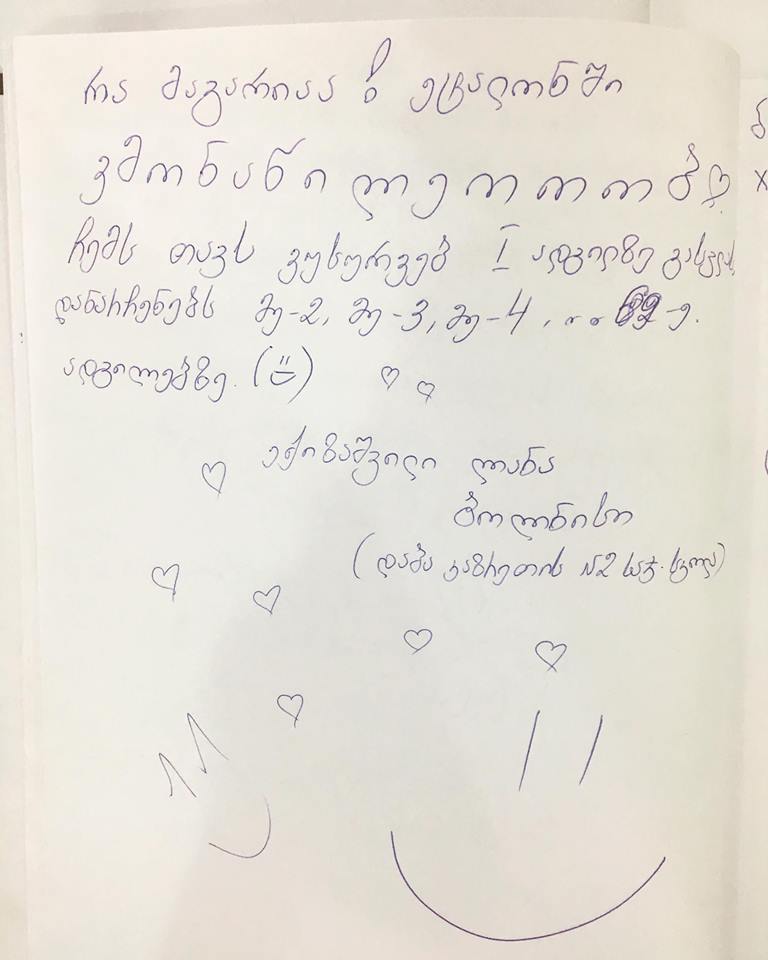 რა მაგარიაა! ეტალონში
ვმონაწილეოოობ
ჩემს თავს ვუსურვებ I ადგილზე გასვლას,
დანარჩენებს მე-2, მე-3, მე-4, ...
ადგილებზე.
ექიზაშვილი ლანა
ბოლნისი
(დაბა კაზრეთის №2 საჯ. სკოლა)